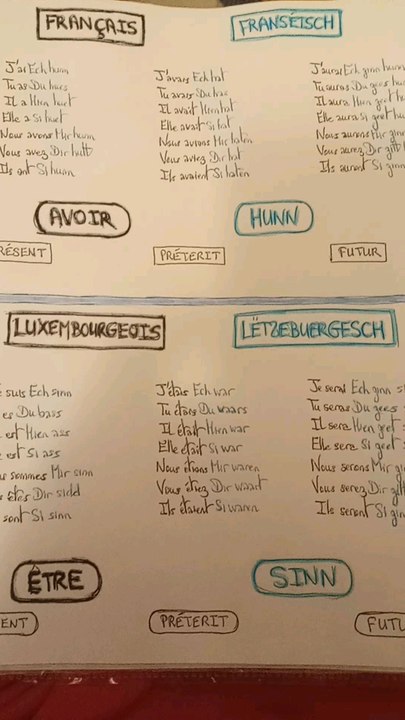 FRANÇAIS FRANSÉISCH
J'ai Ech hunn J'avais Ech hat J'aurai Ech ginn hunn
Tu as Du hues Tu avais Du has Tu auras Du gees hu
Il a Hien huet Il avait Hien hat Il aura Hien greet hu
Elle a Si huet Elle avait Si hat Elle aura Si greet hu
Nous avons Mir hunn Nous avions Mir haten Nous aurons Mir ginn
Vous avez Dir hutt Vous aviez Dir hat Vous aurez Dir gitt h
Ils ont Si hunn Ils avaient Si haten Ils auront Si ginn
AVOIR HUNN
RÉSENT PRÉTERIT FUTUR
LUXEMBOURGEOIS LËTZEBUERGESCH
suis Ech sinn J'étais Ech war Je serai Ech ginn s
es Du bass Tu étais Du waars Tu seras Du gees s
est Hien ass Il était Hien war Il sera Hien greet s
est Si ass Elle était Si war Elle sera Si greet s
sommes Mir sinn Nous étions Mir waren Nous serons Mir gi
êtes Dir sidd Vous étiez Dir waart Vous serez Dir gitt
sont Si sinn Ils étaient Si waren Ils seront Si gin
ÊTRE SINN
ENT PRÉTERIT FUTU